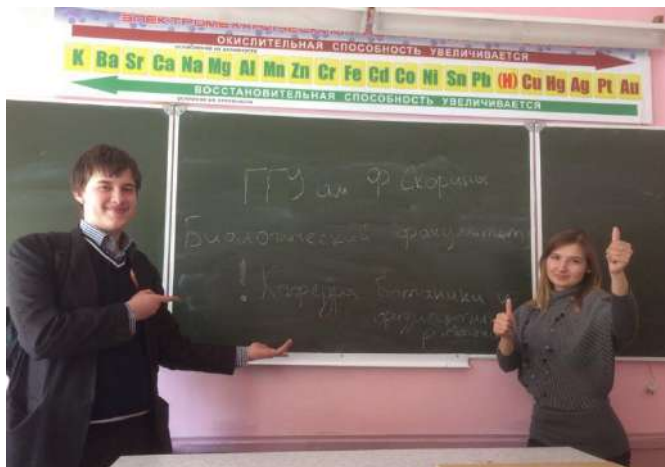 ЭЛЕКТРОМЕХАНИЧЕСКИЙ
ОКИСЛИТЕЛЬНАЯ СПОСОБНОСТЬ УВЕЛИЧИВАЕТСЯ
K Ba Sr Ca Na Mg Al Mn Zn Cr Fe Cd Co Ni Sn Pb (H) Cu Hg Ag Pt Au
ВОССТАНОВИТЕЛЬНАЯ СПОСОБНОСТЬ УВЕЛИЧИВАЕТСЯ
ГГУ им Ф Скорины
Биологический факультет
! Кафедра Ботаники и
физиологии